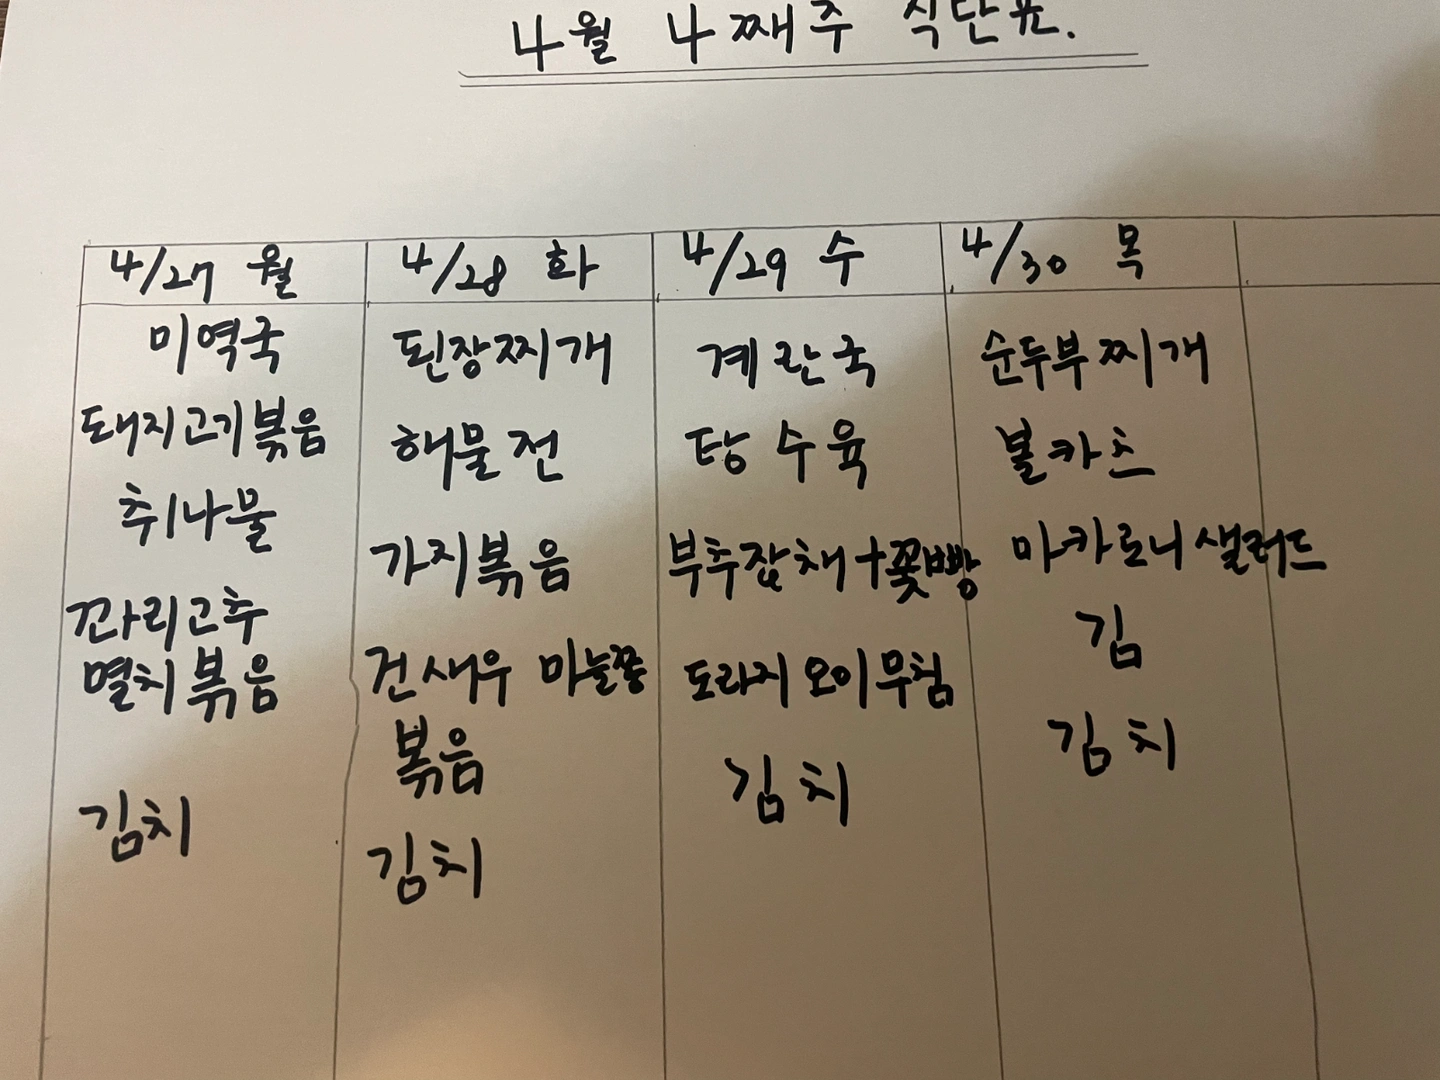 4월 4째주 식단표.
4/27 월
미역국
돼지고기볶음
취나물
꽈리고추
멸치볶음
김치
4/28 화
된장찌개
해물전
가지볶음
건새우 마늘쫑
볶음
김치
4/29 수
계란국
탕수육
부추잡채+꽃빵
도라지오이무침
김치
4/30 목
순두부찌개
볼카츠
마카로니샐러드
김
김치